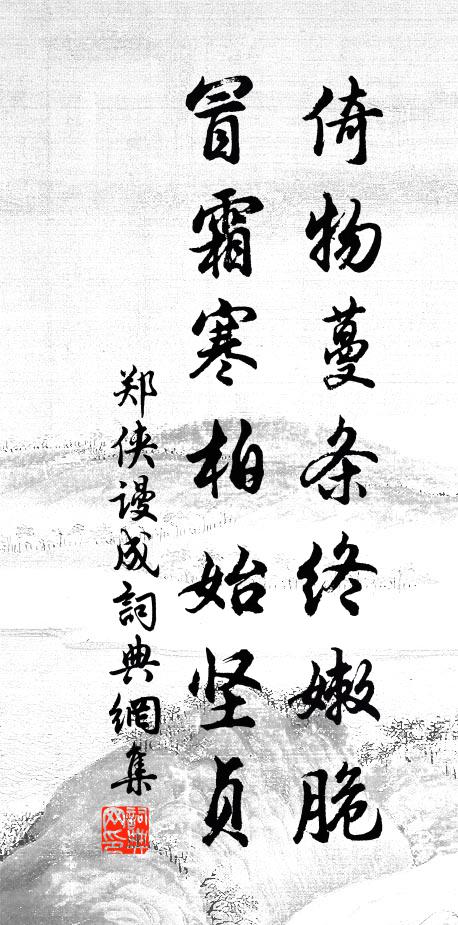 倚物蔓条终嫩脆
冒霜寒柏始坚贞
郑侠谩成詞典網集